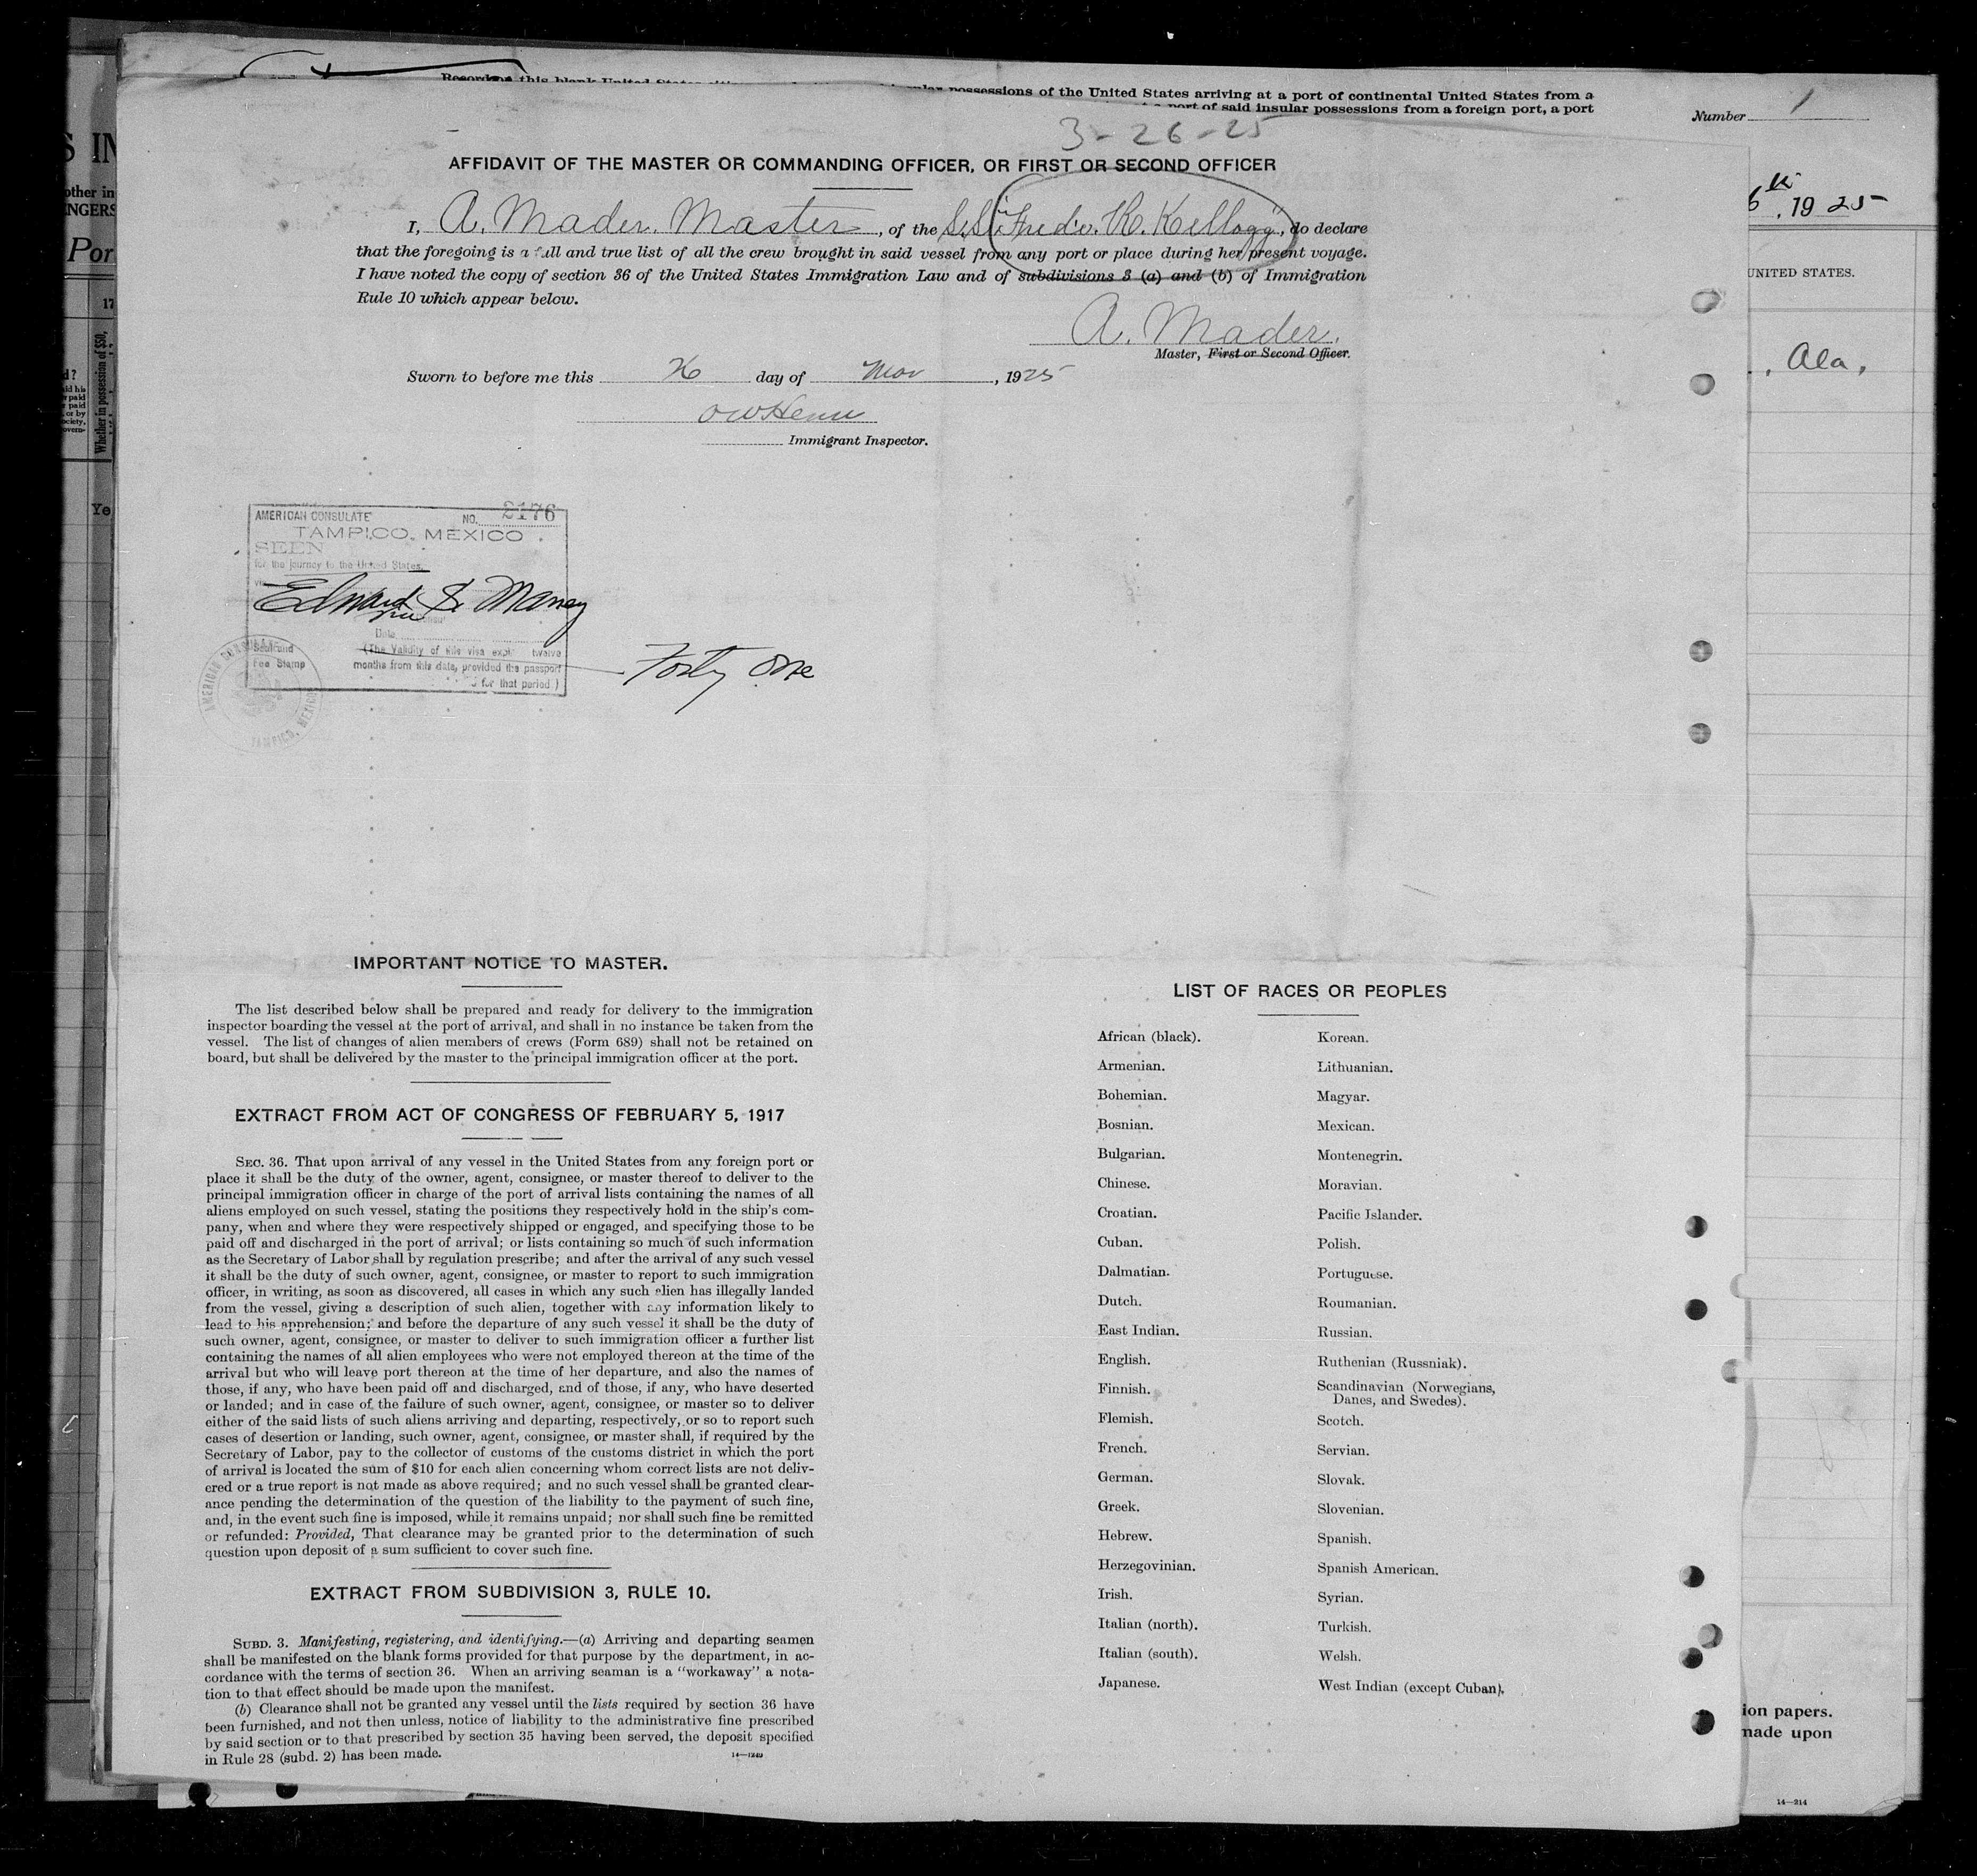 possessions of the United States arriving at a port of continental United States from a
port of said insular possessions from a foreign port, a port
Number 1
3-26-25
AFFIDAVIT OF THE MASTER OR COMMANDING OFFICER, OR FIRST OR SECOND OFFICER
I, A. Mader. Master, of the S.S. "Fred'k. R. Kellogg", do declare
that the foregoing is a full and true list of all the crew brought in said vessel from any port or place during her present voyage.
I have noted the copy of section 36 of the United States Immigration Law and of subdivisions 3 (a) and (b) of Immigration
Rule 10 which appear below.
A. Mader.
Master, First or Second Officer.
Sworn to before me this 26 day of Mar, 1925
Immigrant Inspector.
AMERICAN CONSULATE NO. 2176
TAMPICO, MEXICO
SEEN
for the journey to the United States.
Edward S. Maney
Date
(The Validity of this visa expires twelve
months from this date, provided the passport
for that period)
Seal and
Fee Stamp
AMERICAN CONSULATE
TAMPICO, MEXICO
Forty one
IMPORTANT NOTICE TO MASTER.
The list described below shall be prepared and ready for delivery to the immigration
inspector boarding the vessel at the port of arrival, and shall in no instance be taken from the
vessel. The list of changes of alien members of crews (Form 689) shall not be retained on
board, but shall be delivered by the master to the principal immigration officer at the port.
EXTRACT FROM ACT OF CONGRESS OF FEBRUARY 5, 1917
SEC. 36. That upon arrival of any vessel in the United States from any foreign port or
place it shall be the duty of the owner, agent, consignee, or master thereof to deliver to the
principal immigration officer in charge of the port of arrival lists containing the names of all
aliens employed on such vessel, stating the positions they respectively hold in the ship's com-
pany, when and where they were respectively shipped or engaged, and specifying those to be
paid off and discharged in the port of arrival; or lists containing so much of such information
as the Secretary of Labor shall by regulation prescribe; and after the arrival of any such vessel
it shall be the duty of such owner, agent, consignee, or master to report to such immigration
officer, in writing, as soon as discovered, all cases in which any such alien has illegally landed
from the vessel, giving a description of such alien, together with any information likely to
lead to his apprehension; and before the departure of any such vessel it shall be the duty of
such owner, agent, consignee, or master to deliver to such immigration officer a further list
containing the names of all alien employees who were not employed thereon at the time of the
arrival but who will leave port thereon at the time of her departure, and also the names of
those, if any, who have been paid off and discharged, and of those, if any, who have deserted
or landed; and in case of the failure of such owner, agent, consignee, or master so to deliver
either of the said lists of such aliens arriving and departing, respectively, or so to report such
cases of desertion or landing, such owner, agent, consignee, or master shall, if required by the
Secretary of Labor, pay to the collector of customs of the customs district in which the port
of arrival is located the sum of $10 for each alien concerning whom correct lists are not deliv-
ered or a true report is not made as above required; and no such vessel shall be granted clear-
ance pending the determination of the question of the liability to the payment of such fine,
and, in the event such fine is imposed, while it remains unpaid; nor shall such fine be remitted
or refunded: Provided, That clearance may be granted prior to the determination of such
question upon deposit of a sum sufficient to cover such fine.
EXTRACT FROM SUBDIVISION 3, RULE 10.
SUBD. 3. Manifesting, registering, and identifying.—(a) Arriving and departing seamen
shall be manifested on the blank forms provided for that purpose by the department, in ac-
cordance with the terms of section 36. When an arriving seaman is a "workaway" a nota-
tion to that effect should be made upon the manifest.
(b) Clearance shall not be granted any vessel until the lists required by section 36 have
been furnished, and not then unless, notice of liability to the administrative fine prescribed
by said section or to that prescribed by section 35 having been served, the deposit specified
in Rule 28 (subd. 2) has been made.
14—1240
LIST OF RACES OR PEOPLES
African (black).
Armenian.
Bohemian.
Bosnian.
Bulgarian.
Chinese.
Croatian.
Cuban.
Dalmatian.
Dutch.
East Indian.
English.
Finnish.
Flemish.
French.
German.
Greek.
Hebrew.
Herzegovinian.
Irish.
Italian (north).
Italian (south).
Japanese.
Korean.
Lithuanian.
Magyar.
Mexican.
Montenegrin.
Moravian.
Pacific Islander.
Polish.
Portuguese.
Roumanian.
Russian.
Ruthenian (Russniak).
Scandinavian (Norwegians,
Danes, and Swedes).
Scotch.
Servian.
Slovak.
Slovenian.
Spanish.
Spanish American.
Syrian.
Turkish.
Welsh.
West Indian (except Cuban).
6th, 1925
UNITED STATES.
, Ala,
ion papers.
made upon
14—214
S IN
other in
ENGERS
Por
17
Whether in possession of $50,
Ye